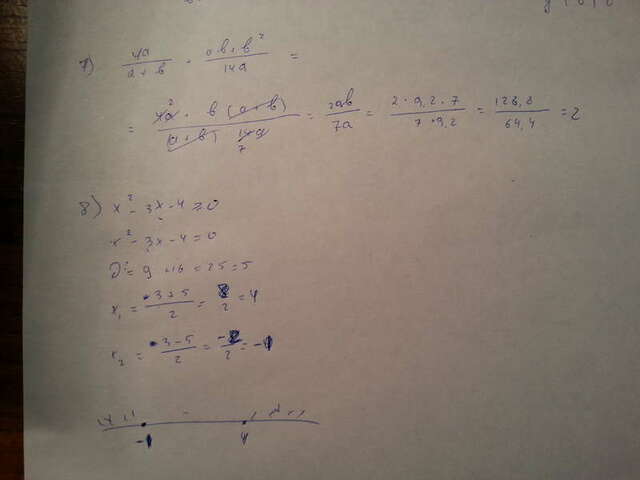 7) 4a/(a+b) · (ab+b²)/(14a) =
= (4a · b(a+b))/((a+b) 14a) = 2ab/7a = (2·9,2·7)/(7·9,2) = 128,8/64,4 = 2
2
7
8) x² - 3x - 4 ≥ 0
x² - 3x - 4 = 0
D = 9 + 16 = 25 = 5
x₁ = (3+5)/2 = 8/2 = 4
x₂ = (3-5)/2 = -2/2 = -1
-1 4